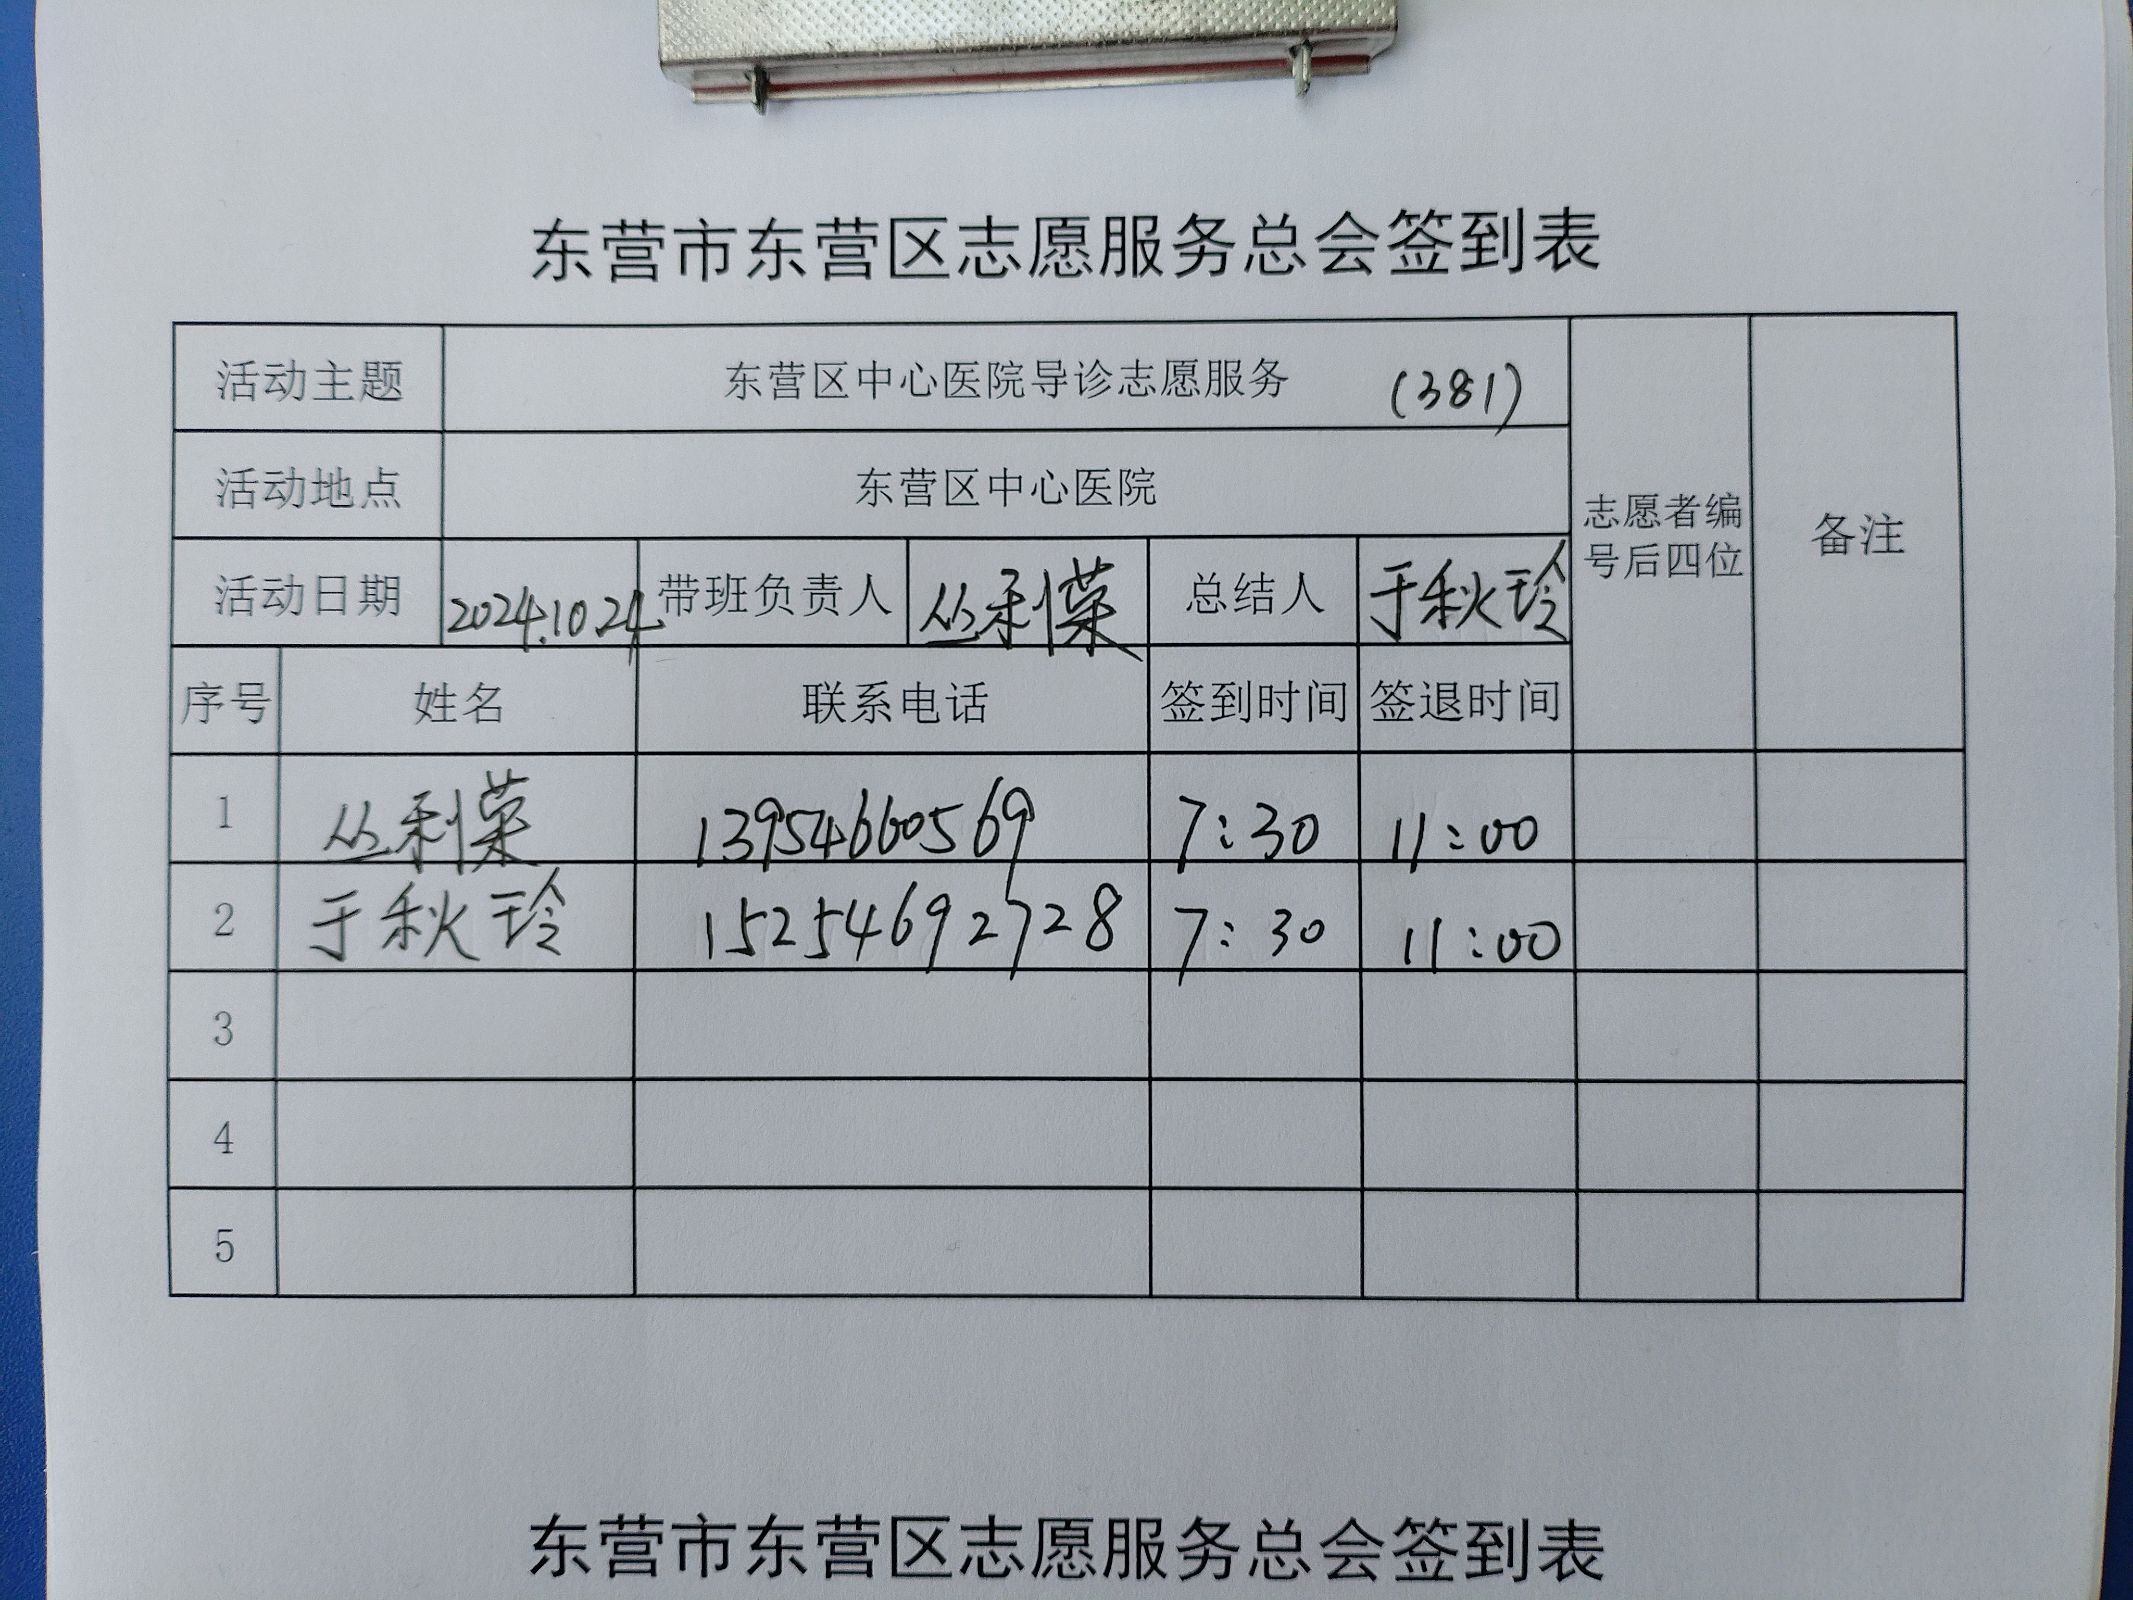 东营市东营区志愿服务总会签到表
活动主题 东营区中心医院导诊志愿服务 (381) 志愿者编号后四位 备注
活动地点 东营区中心医院
活动日期 2024.10 24 带班负责人 丛利荣 总结人 于秋玲
序号 姓名 联系电话 签到时间 签退时间
1 丛利荣 13954660569 7:30 11:00
2 于秋玲 15254692728 7:30 11:00
3
4
5
东营市东营区志愿服务总会签到表